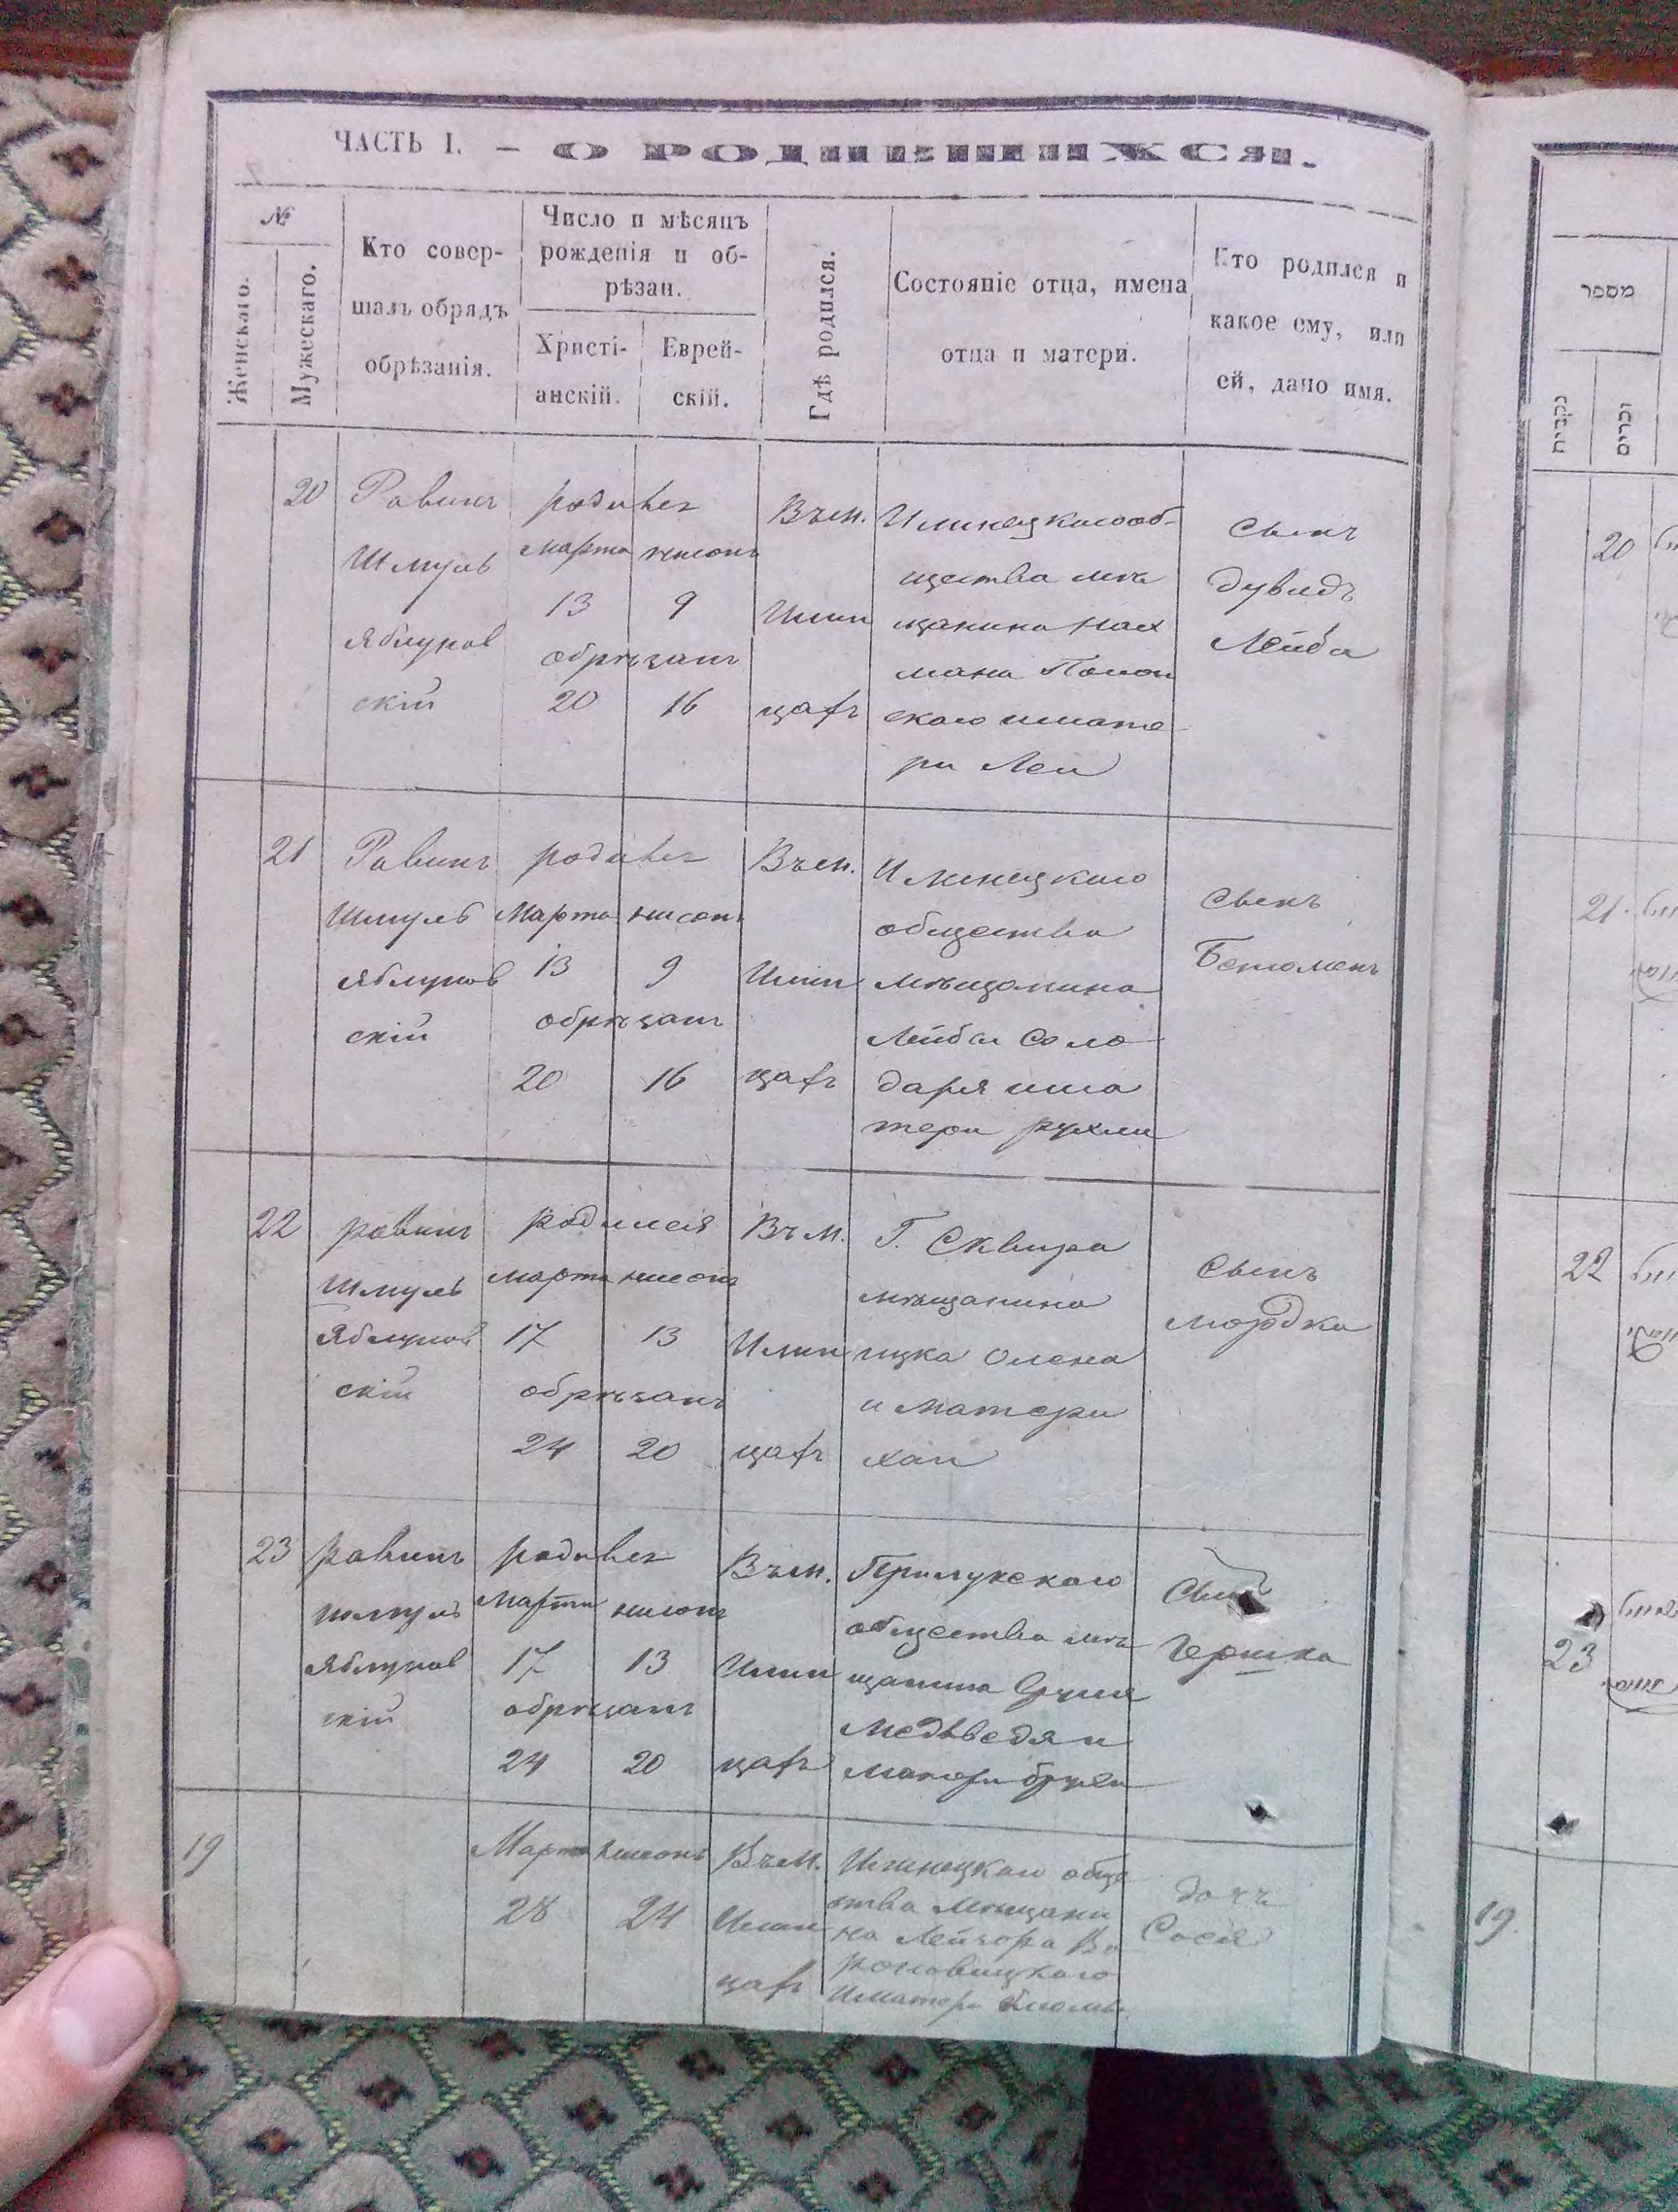 ЧАСТЬ I. — О РОДИВШИХСЯ.
№
Женскаго.
Мужескаго.
Кто совер-
шалъ обрядъ
обрѣзанія.
Число и мѣсяцъ
рожденія и об-
рѣзан.
Христі-
анскій.
Еврей-
скій.
Гдѣ родился.
Состояніе отца, имена
отца и матери.
Кто родился и
какое ему, или
ей, дано имя.
20
Равинъ
Шмуль
Яблунов
скій
марта нисонъ
13 9
обрѣзанъ
20 16
Въ м.
Илин
цахъ
Илинецкаго об-
щества мѣ
щанина Нах
мана
скаго и мате
ри Леи
сынъ
Дувидъ
Лейба
21
Равинъ
Шмуль
Яблунов
скій
Марта нисонъ
13 9
обрѣзанъ
20 16
Въ м.
Илин
цахъ
Илинецкаго
общества
мѣщанина
Лейбы Соло
даря и ма
тери Рухли
сынъ
22
равинъ
Шмуль
Яблунов
скій
родился
марта нисонъ
17 13
обрѣзанъ
24 20
Въ м.
Илин
цахъ
Г. Сквира
мѣщанина
Ицка
и матери
Хаи
сынъ
Мордко
23
равинъ
Шмуль
Яблунов
скій
марта нисонъ
17 13
обрѣзанъ
24 20
Въ м.
Илин
цахъ
Прилукскаго
общества мѣ
щанина
Медвѣдя и
матери
сынъ
Гершко
19
Марта нисонъ
28 24
Въ м.
Илин
цахъ
Илинецкаго обще
ства мѣщани
на Лейзора Во
роновицкаго
и матери
дочь
Сося
מספר
נקבות
זכרים
20
21
22
23
19.